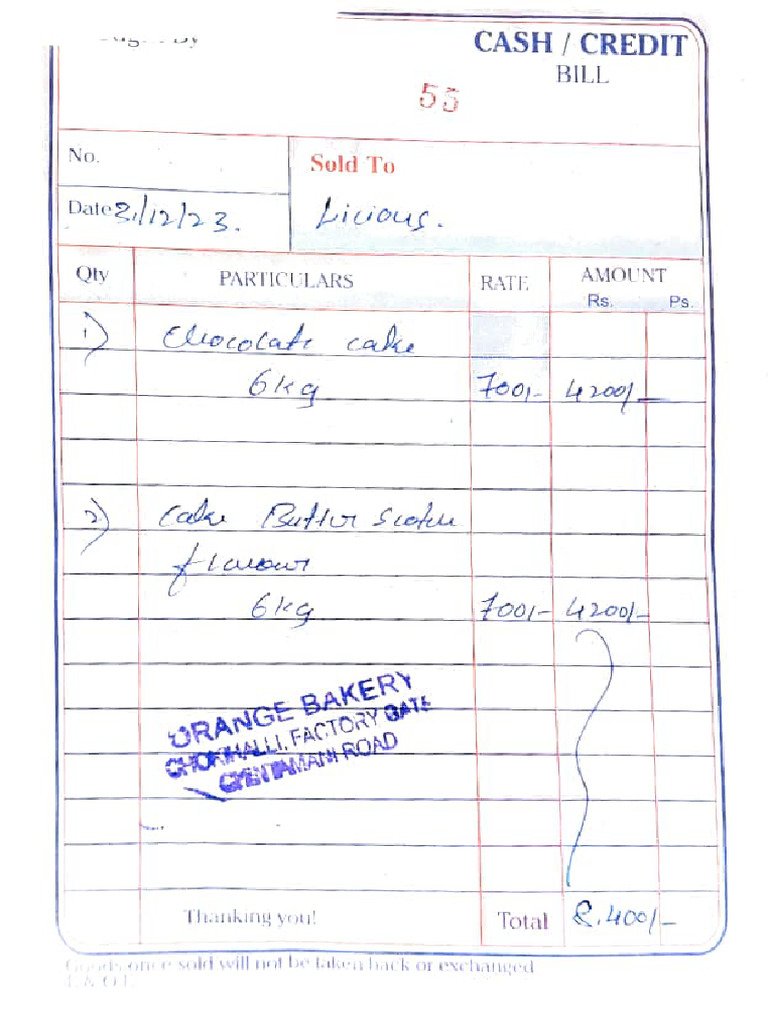 CASH / CREDIT
BILL
55
No.
Sold To
Date 2/12/23.
Licious.
Qty PARTICULARS RATE AMOUNT
Rs. Ps.
1) Chocolate cake
6kg 700/- 4200/-
2) Cake Butter Scotch
flavour
6kg 700/- 4200/-
ORANGE BAKERY
CHOKHALLI, FACTORY GATE
CHINTAMANI ROAD
Thanking you! Total 8.400/-
Goods once sold will not be taken back or exchanged
E. & O.E.